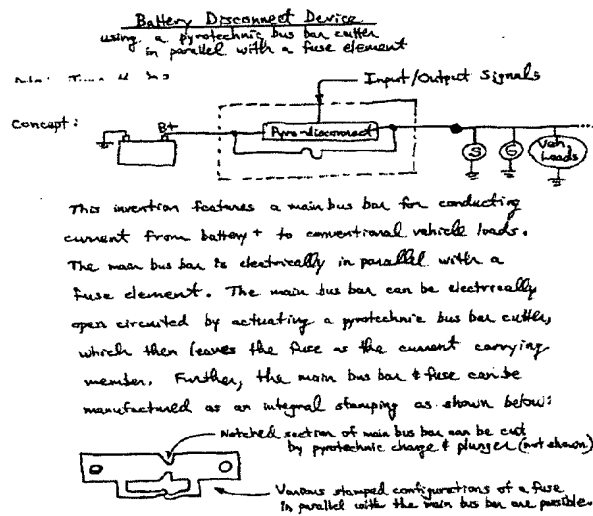 Battery Disconnect Device
using a pyrotechnic bus bar cutter
in parallel with a fuse element
Input/Output Signals
Concept:
B+
Pyro-disconnect
S
G
Veh. Loads
This invention features a main bus bar for conducting
current from battery + to conventional vehicle loads.
The main bus bar is electrically in parallel with a
fuse element. The main bus bar can be electrically
open circuited by actuating a pyrotechnic bus bar cutter,
which then leaves the fuse as the current carrying
member. Further, the main bus bar & fuse can be
manufactured as an integral stamping as shown below:
Notched section of main bus bar can be cut
by pyrotechnic charge & plunger (not shown)
Various stamped configurations of a fuse
in parallel with the main bus bar are possible.